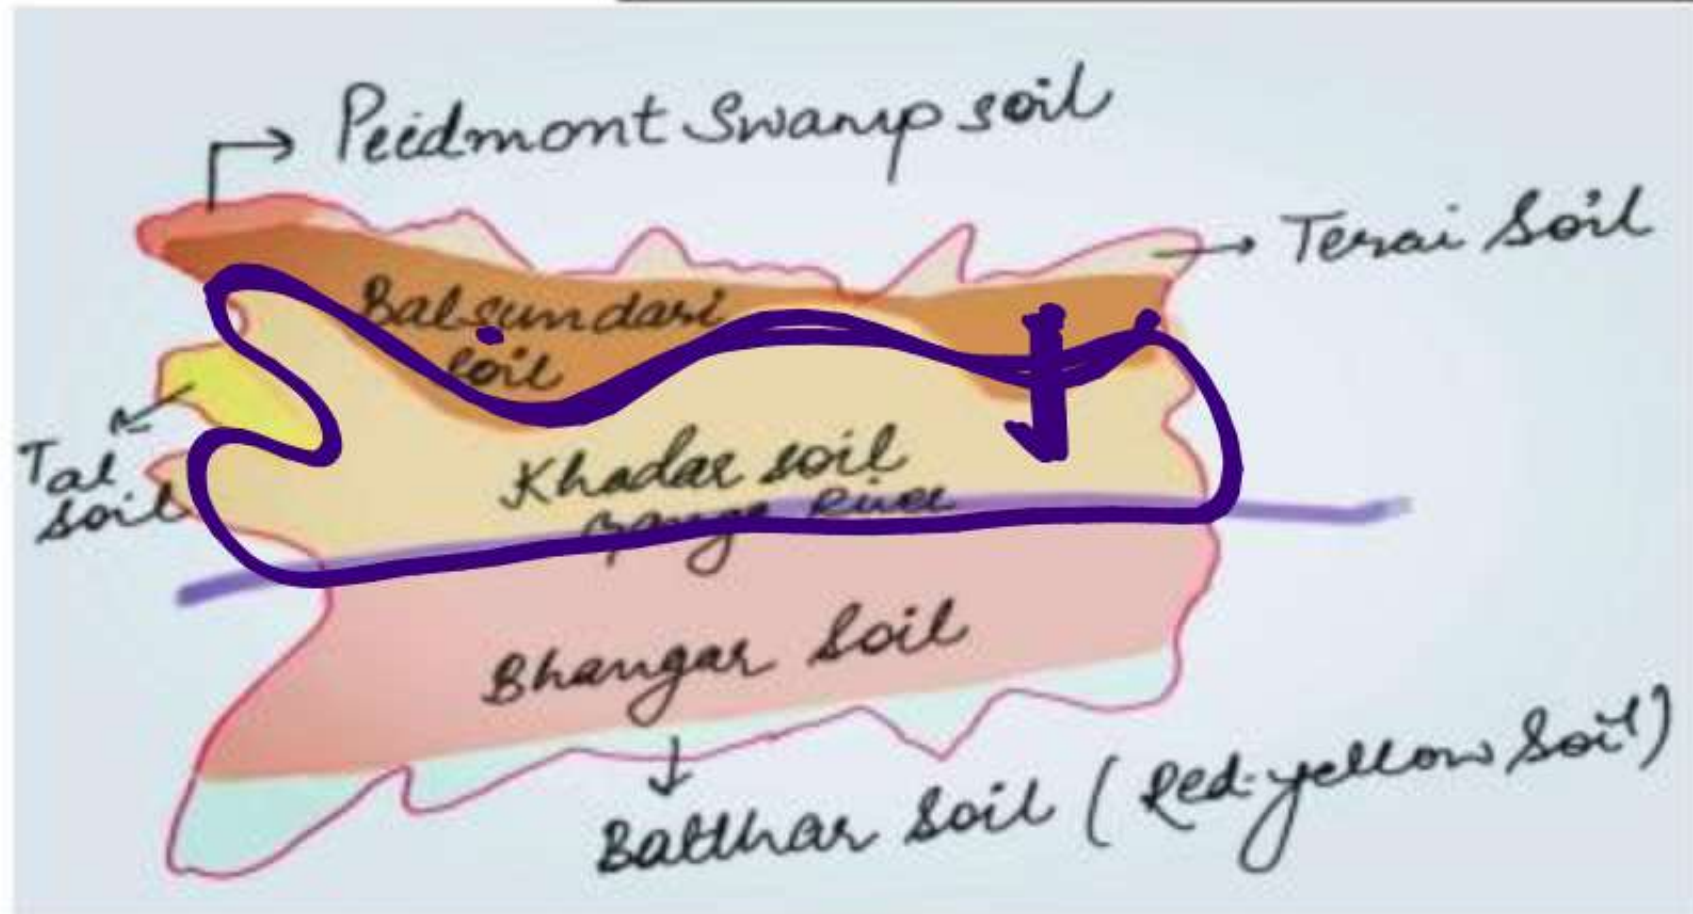 Peidmont Swamp soil
Terai Soil
Balsundari
Soil
Tal
soil
Khadar soil
Gange River
Bhangar Soil
Balthar Soil (Red-yellow Soil)